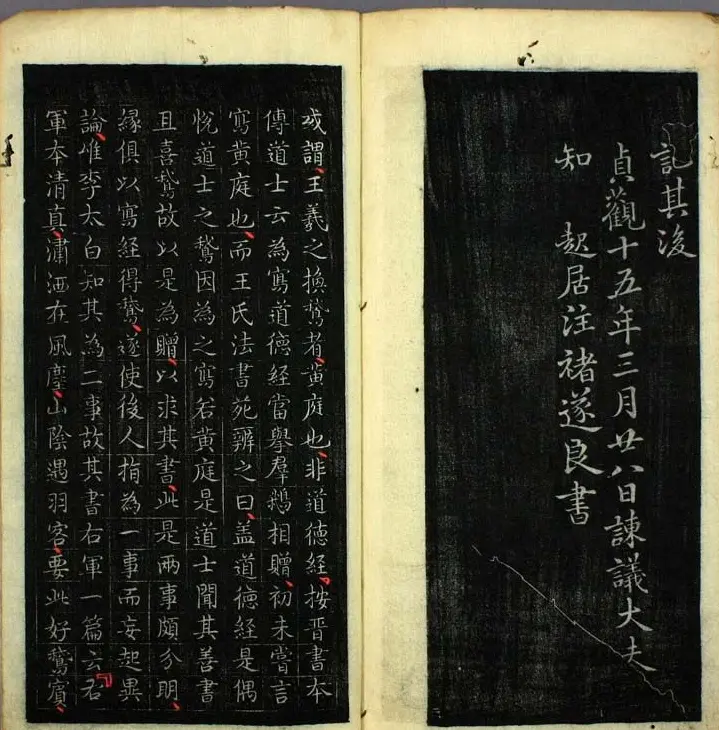 記其後
貞觀十五年三月廿八日諫議大夫
知 起居注褚遂良書
或謂王羲之換鵞者黄庭也非道德經按晉書本
傳道士云為寫道德經當舉羣鵝相贈初未嘗言
寫黄庭也而王氏法書苑辨之曰盖道德經是偶
悅道士之鵞因為之寫若黄庭是道士聞其善書
且喜鵞故以是為贈以求其書此是兩事頗分明
縁俱以寫經得鵞遂使後人指為一事而妄起異
論唯李太白知其為二事故其書右軍一篇云右
軍本清真瀟洒在風塵山陰遇羽客要此好鵞賓